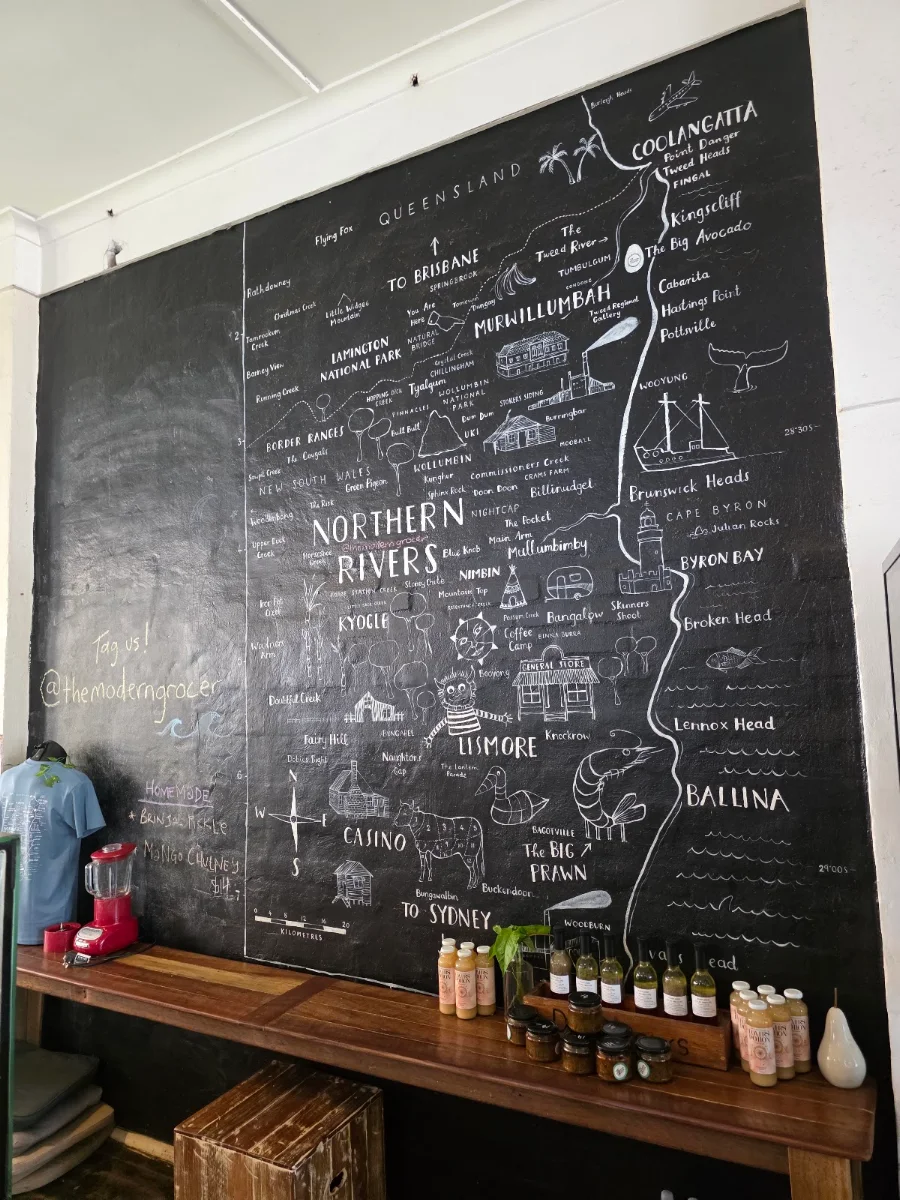 Burleigh Heads
COOLANGATTA
Point Danger
Tweed Heads
FINGAL
QUEENSLAND
Flying Fox
Kingscliff
The
Tweed River→
The Big Avocado
↑
TO BRISBANE
SPRINGBROOK
TUMBULGUM
CONDONG
Rathdowney
Cabarita
Christmas Creek
Little Widgee
Mountain
You Are
Here
Tomewin
Dungay
MURWILLUMBAH
Tweed Regional
Gallery
Hastings Point
Pottsville
Tamrookum
Creek
LAMINGTON
NATIONAL PARK
NATURAL
BRIDGE
Barney View
Crystal Creek
CHILLINGHAM
Tyalgum
Running Creek
HOPPING DICK
CREEK
WOLLUMBIN
NATIONAL
PARK
STOKERS SIDING
WOOYUNG
PINNACLES
Dum Dum
Burringbar
BORDER RANGES
The Cougals
Bull Bull
UKI
MOOBALL
28°30S
WOLLUMBIN
NEW SOUTH WALES
Green Pigeon
Kunghur
Commissioners Creek
CRAMS FARM
Sphinx Rock
Doon Doon
Billinudgel
Brunswick Heads
The Risk
NORTHERN
RIVERS
@themoderngrocer
NIGHTCAP
The Pocket
Main Arm
Mullumbimby
CAPE BYRON
Julian Rocks
Woodenbong
Upper Duck
Creek
Horseshoe
Creek
Blue Knob
BYRON BAY
Stony Chute
NIMBIN
Mountain Top
Possum Creek
Bangalow
Skinners
Shoot
KYOGLE
Coffee
Camp
BINNA BURRA
Broken Head
Booyong
GENERAL STORE
Tag us!
@themoderngrocer
Doubtful Creek
Fairy Hill
LISMORE
Knockrow
Lennox Head
Naughtons
Gap
The Lantern
Parade
HOMEMADE
+ BRINJAL PICKLE
MANGO CHUTNEY
$14
N
W
E
S
CASINO
BALLINA
BAGOTVILLE
The BIG
PRAWN
29°00S
Bungawalbin
Buckendoon
TO SYDNEY
WOODBURN
0 4 8 12 16 20
KILOMETRES